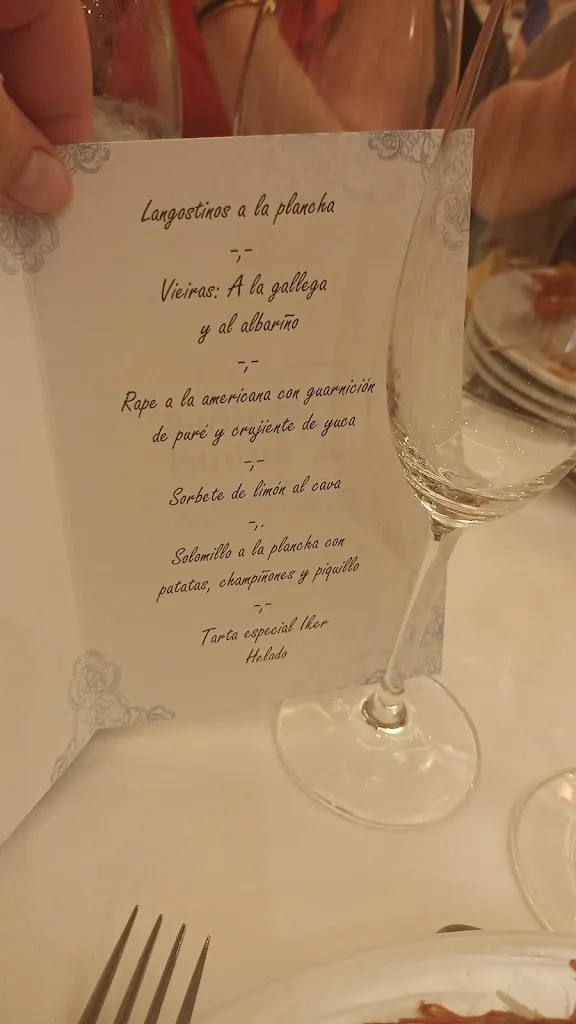 Langostinos a la plancha
-,-
Vieiras: A la gallega
y al albariño
-,-
Rape a la americana con guarnición
de puré y crujiente de yuca
-,-
Sorbete de limón al cava
-,.
Solomillo a la plancha con
patatas, champiñones y piquillo
-,-
Tarta especial Iker
Helado